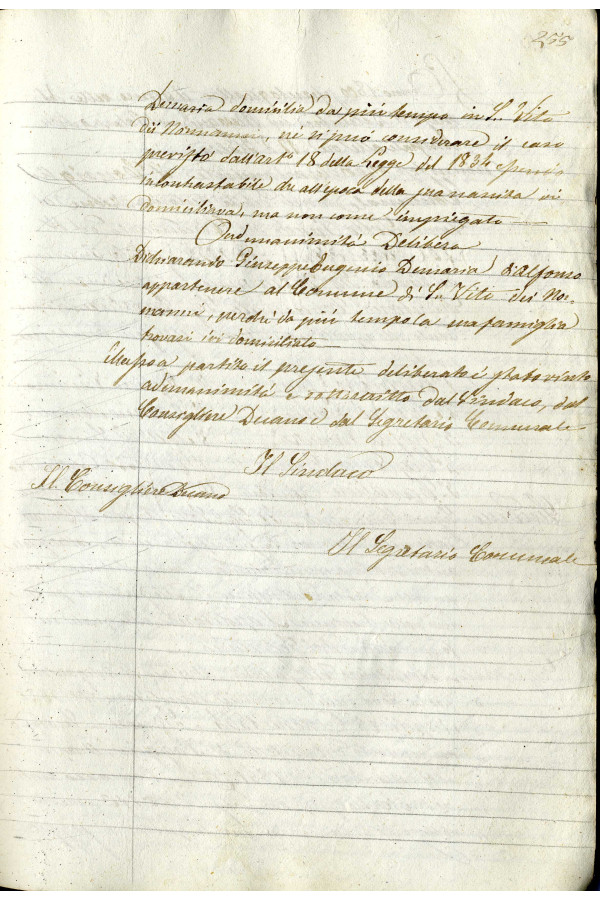 255
Demaria domicilia da più tempo in S. Vito
dei Normanni, nè si può considerare il caso
previsto dall'art.º 18 della Legge del 1834 essendo
incontrastabile che all'epoca della sua nascita vi
domiciliava, ma non come impiegato
Ad unanimità Delibera
Dichiarando Giuseppe Eugenio Demaria di Alfonso
appartenere al Comune di S. Vito dei Nor-
manni, perchè da più tempo la sua famiglia
trovasi ivi domiciliata
Messo a partito il presente deliberato è
ad unanimità e sottoscritto dal Sindaco, dal
Consigliere Decano e dal Segretario Comunale
Il Sindaco
Il Consigliere Decano
Il Segretario Comunale